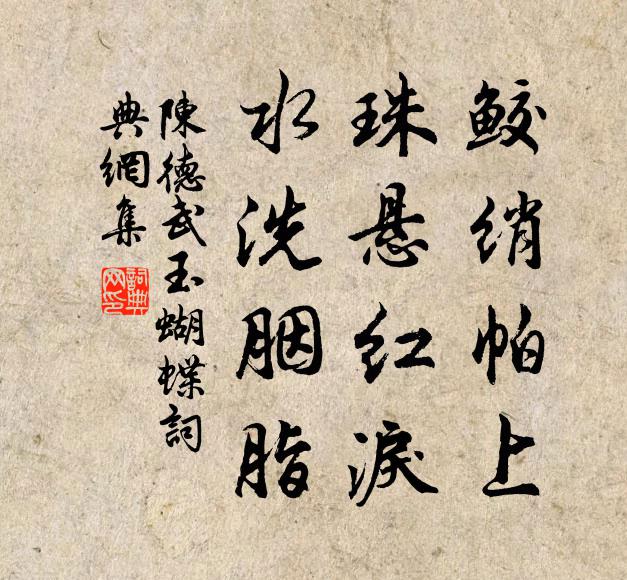 鮫綃帕上
珠懸紅淚
水洗胭脂
陳德武玉蝴蝶詞
典網集
詞典网印